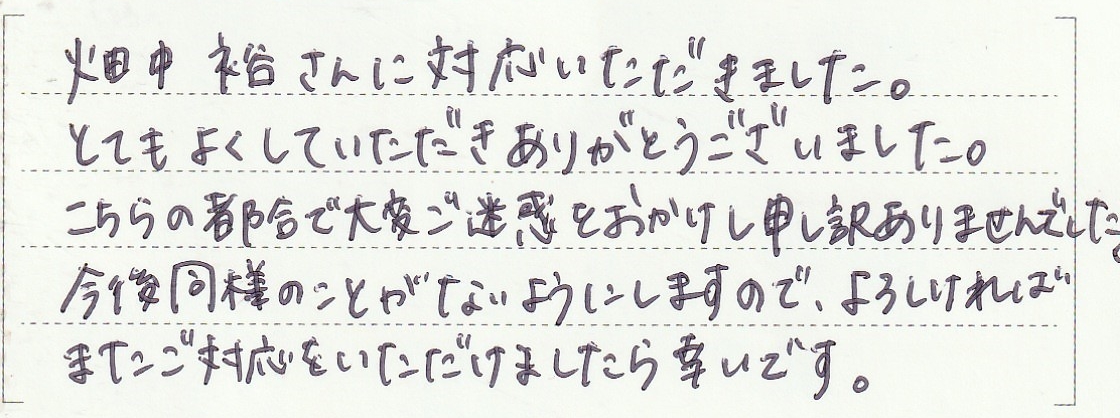 畑中 裕さんに対応いただきました。
とてもよくしていただきありがとうございました。
こちらの都合で大変ご迷惑をおかけし申し訳ありませんでした。
今後同様のことがないようにしますので、よろしければ
またご対応をいただけましたら幸いです。